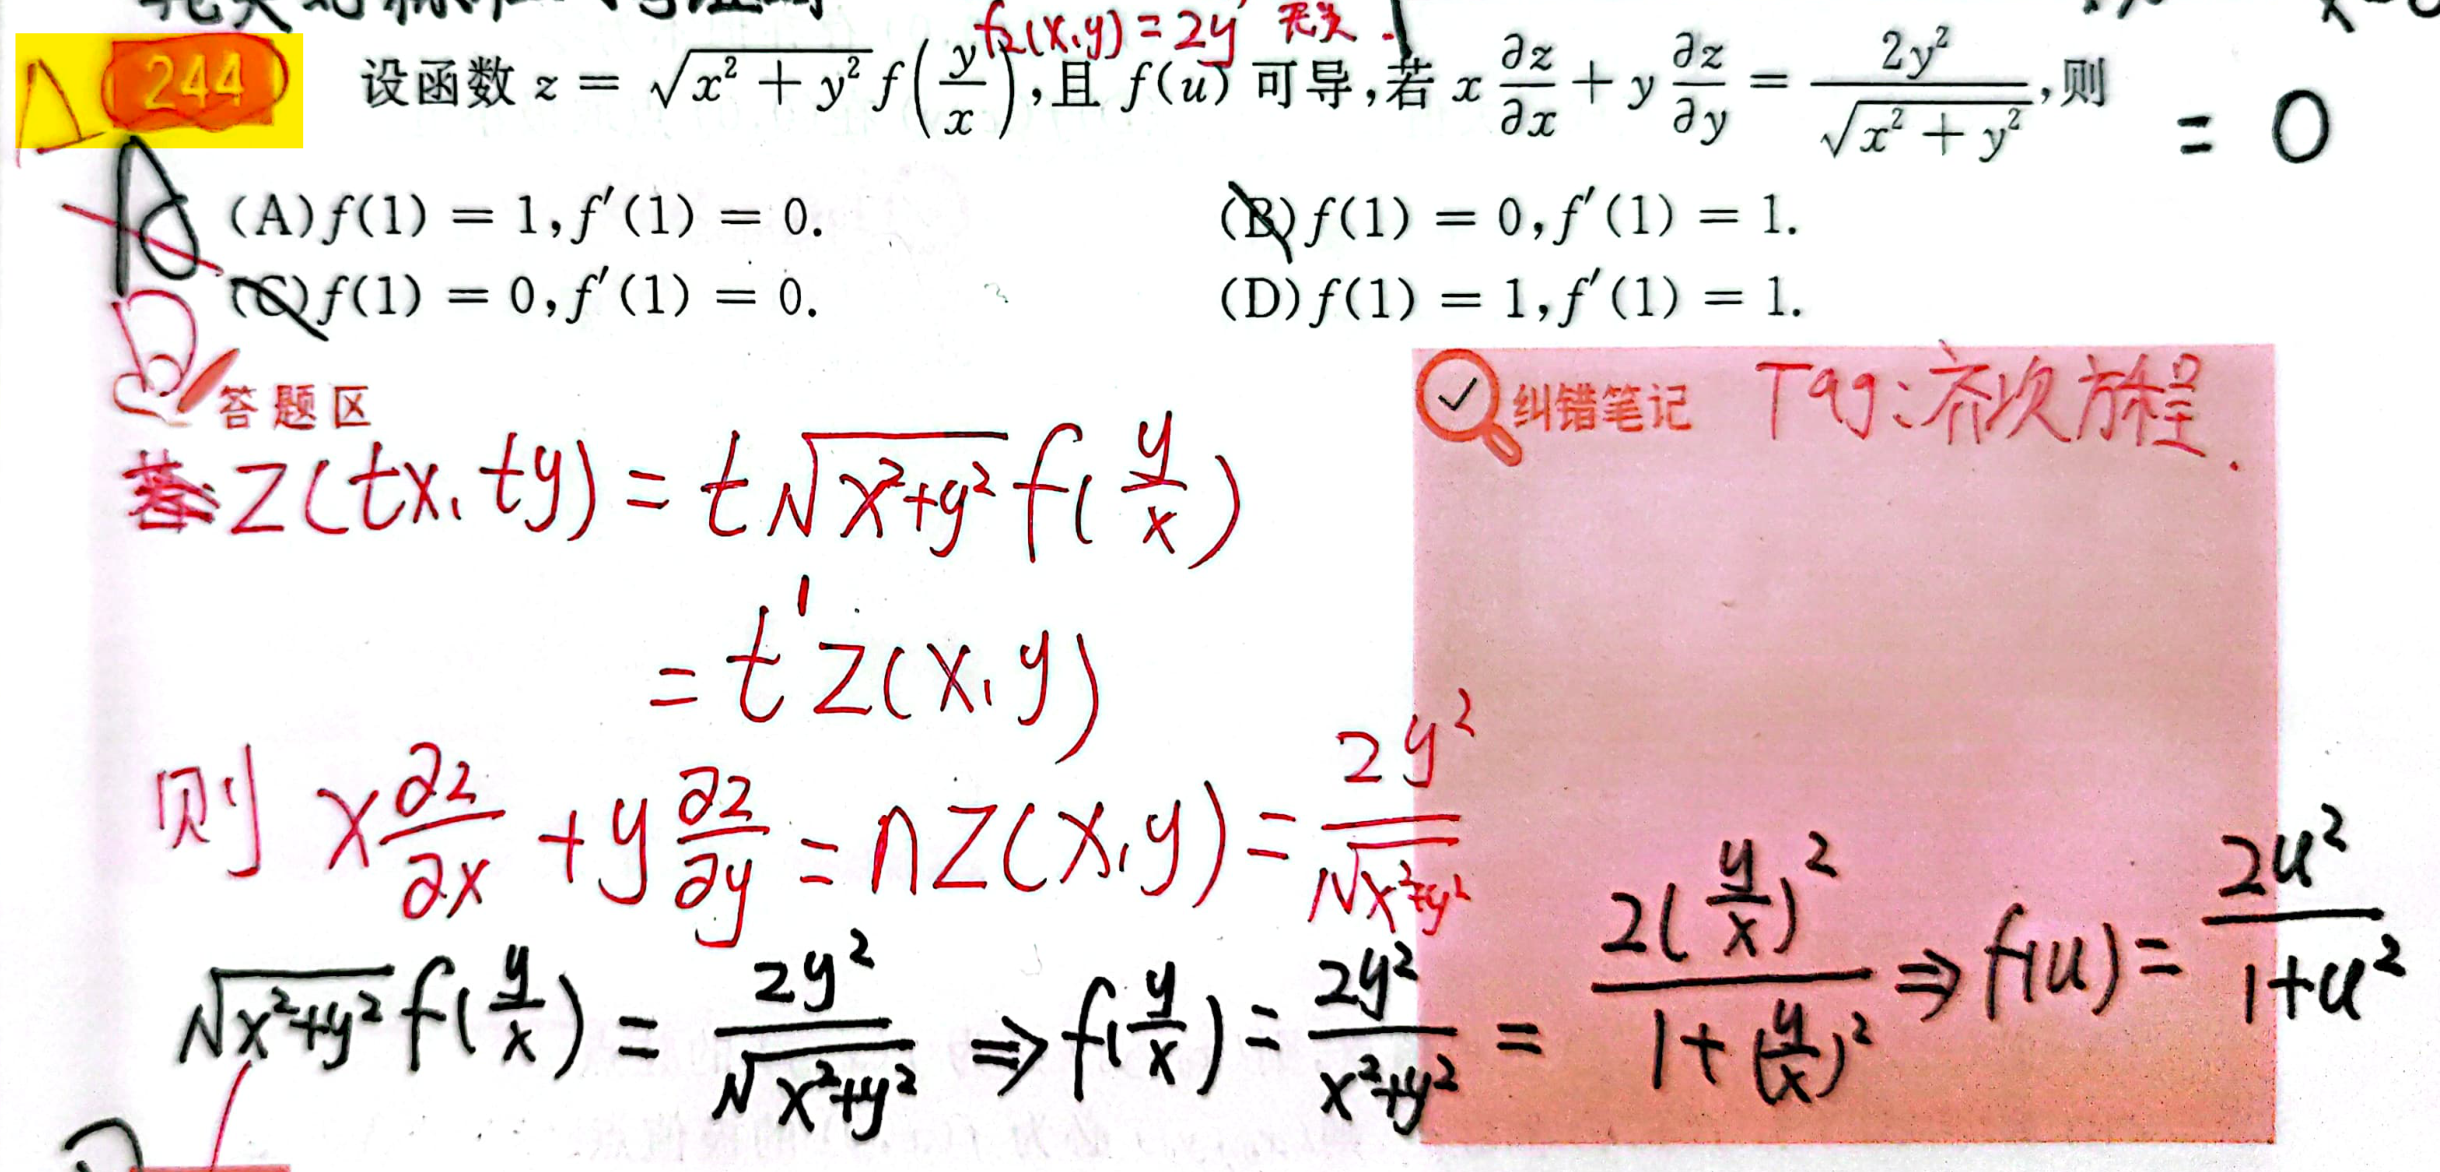 f₂(x,y)=2y
244 设函数 z = √(x² + y²) f(y/x), 且 f(u) 可导, 若 x ∂z/∂x + y ∂z/∂y = 2y²/√(x² + y²), 则
= 0
A
(A) f(1) = 1, f′(1) = 0.
(B) f(1) = 0, f′(1) = 1.
(C) f(1) = 0, f′(1) = 0.
(D) f(1) = 1, f′(1) = 1.
答题区
纠错笔记 Tag: 齐次方程.
Z(tx, ty) = t√(x²+y²) f(y/x)
= t¹ Z(x, y)
则 x ∂z/∂x + y ∂z/∂y = nZ(x, y) = 2y²/√(x²+y²)
√(x²+y²) f(y/x) = 2y²/√(x²+y²) ⇒ f(y/x) = 2y²/(x²+y²) = 2(y/x)²/(1+(y/x)²) ⇒ f(u) = 2u²/(1+u²)